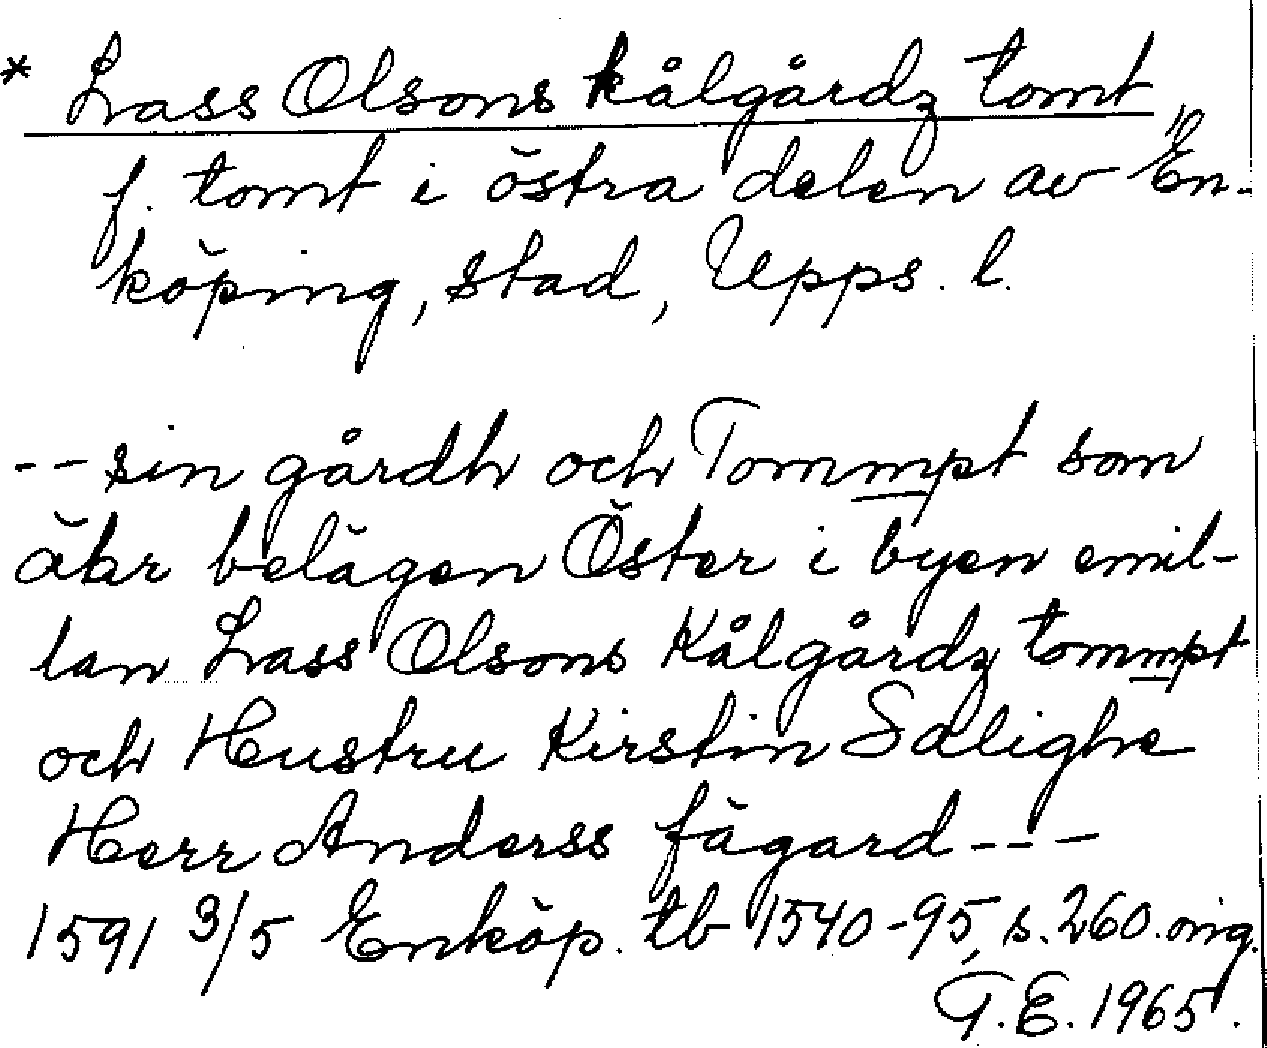 * Lass Olsons kålgårdz tomt
f. tomt i östra delen av En-
köping, stad, Upps. l.
-- sin gårdh och Tommpt som
äkr belägen Öster i byen emil-
lan Lass Olsons Kålgårdz tommpt
och Hustru Kirstin Salighe
Herr Anderss fägard ---
1591 3/5 Enköp. tb 1540-95, s. 260. orig.
T.E. 1965.